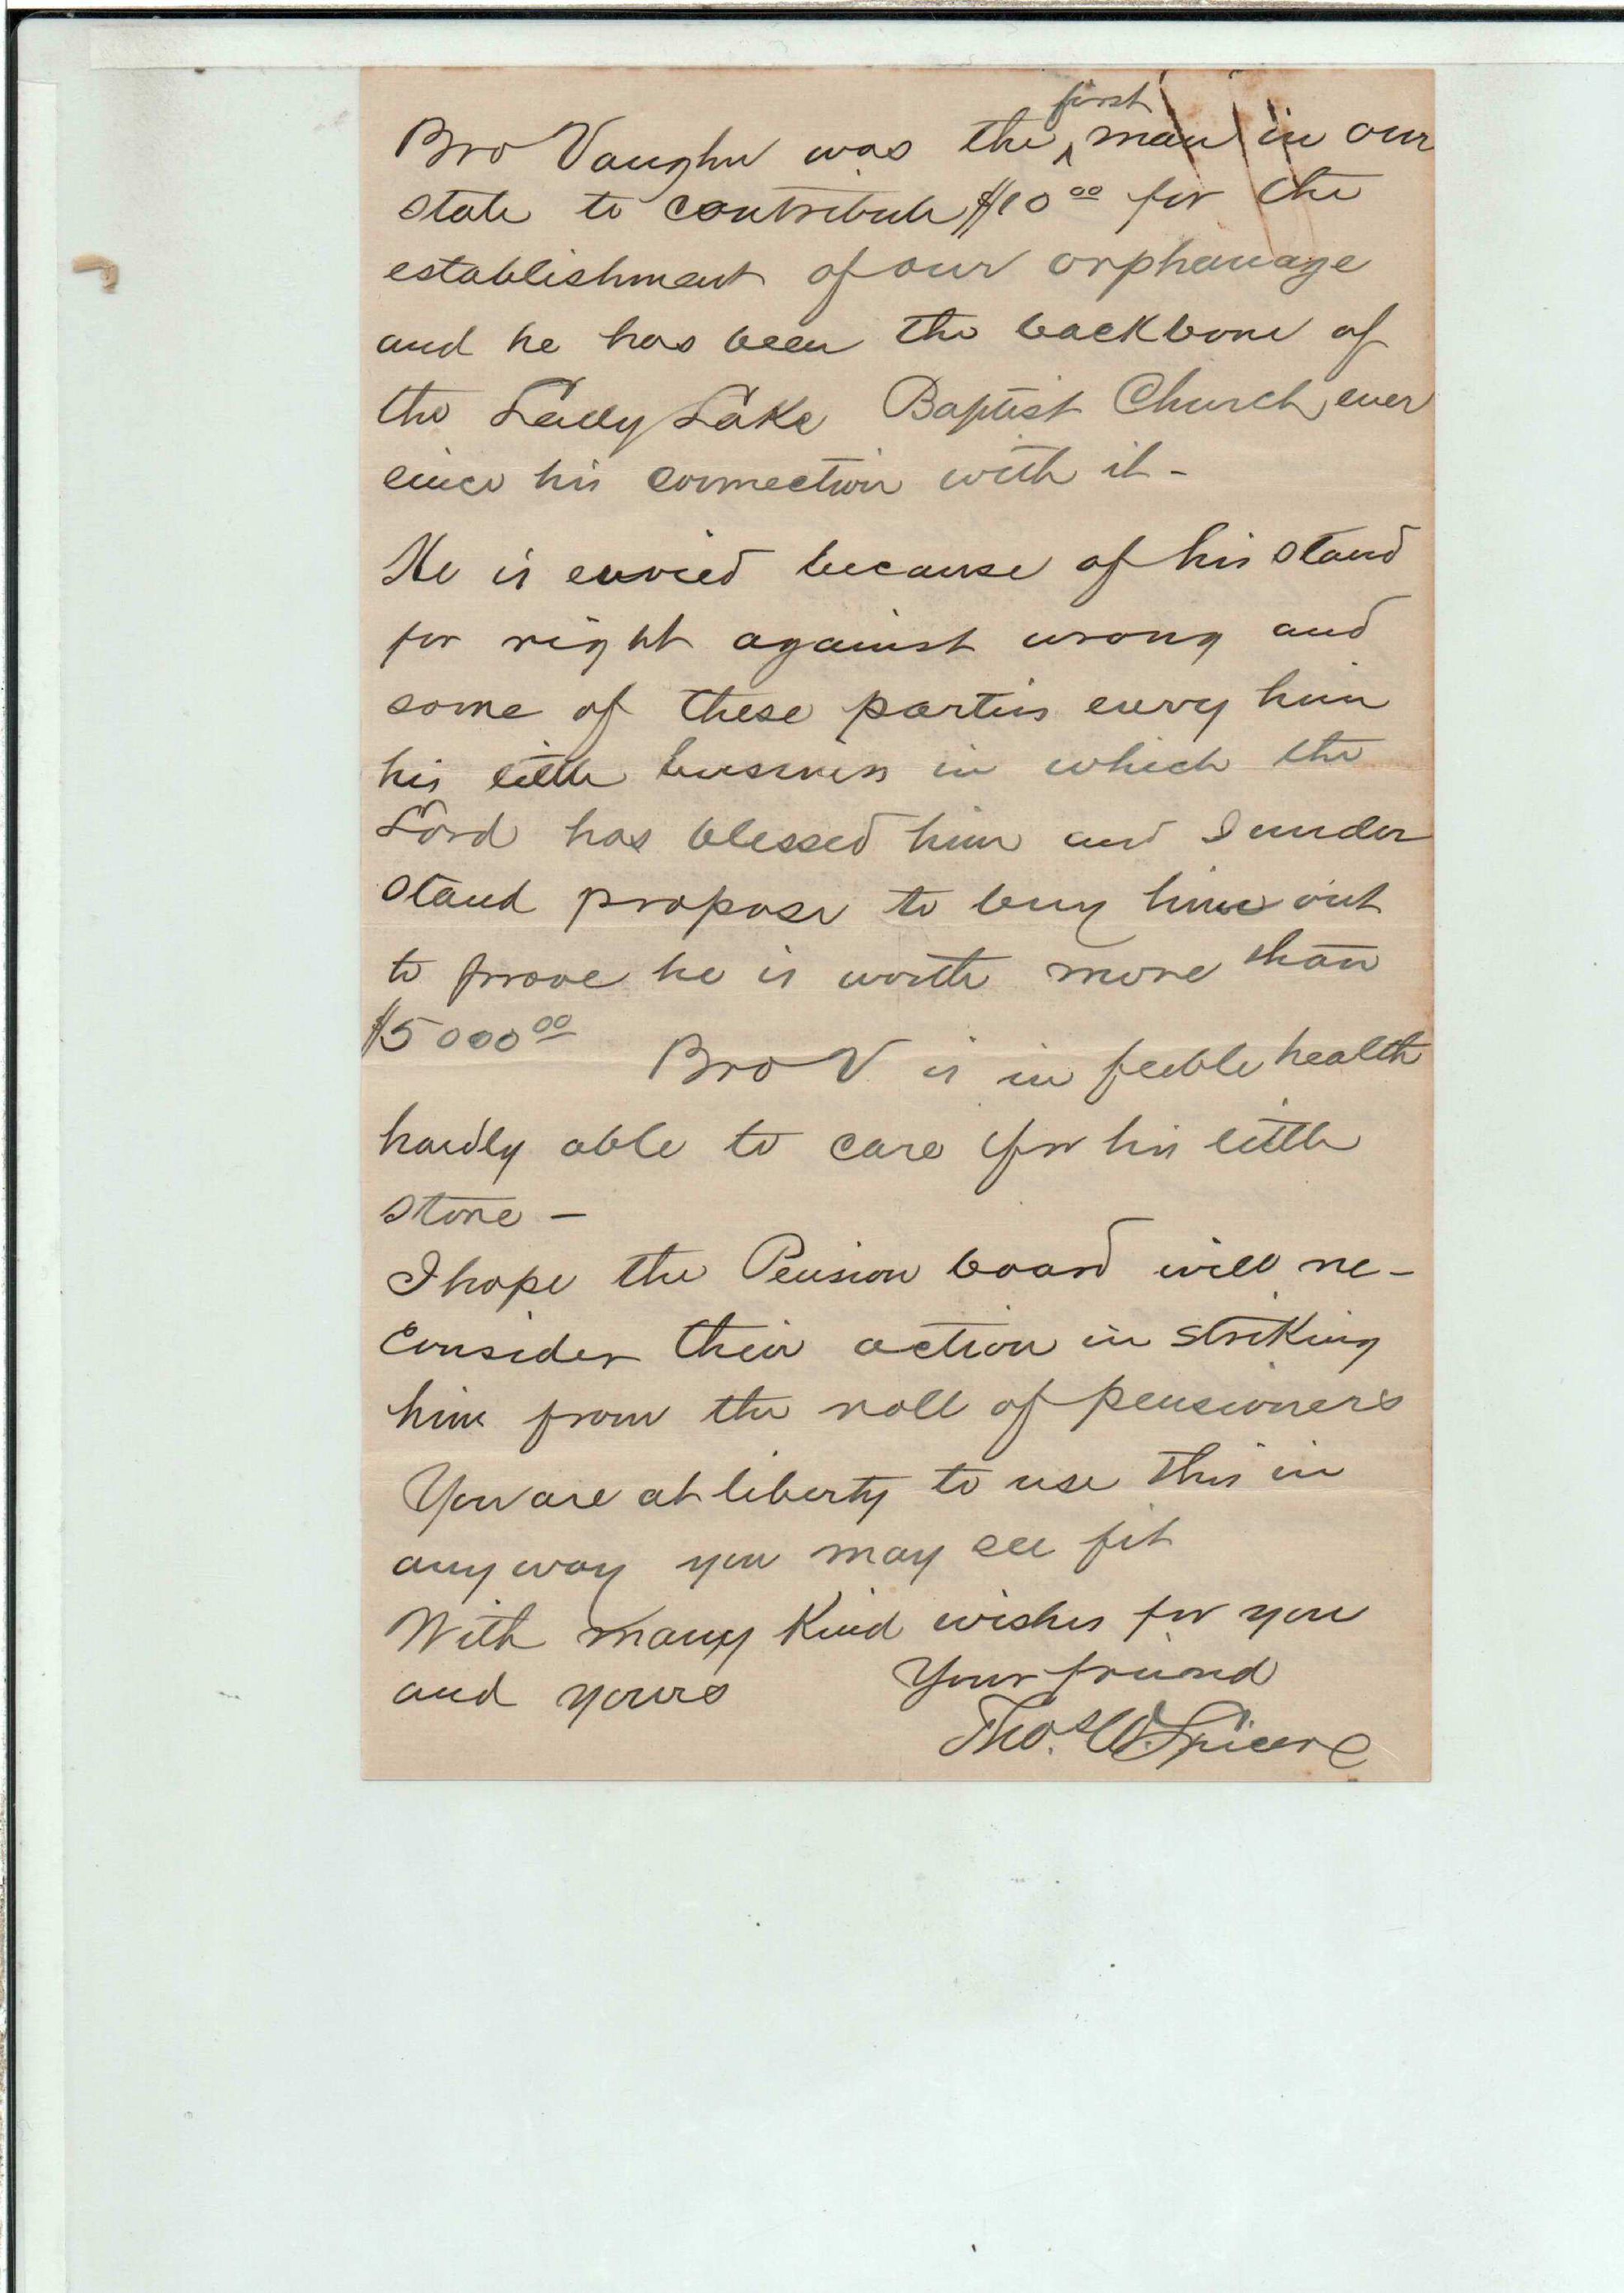 Bro Vaughn was the ^first man in our
state to contribute $10 00 for the
establishment of our orphanage
and he has been the backbone of
the Lady Lake Baptist Church, ever
since his connection with it -
He is envied because of his stand
for right against wrong and
some of these parties envy him
his little business in which the
Lord has blessed him and I under
stand propose to buy him out
to prove he is worth more than
$5000 00 Bro V is in feeble health
hardly able to care for his little
store -
I hope the Pension board will re-
consider their action in striking
him from the roll of pensioners
You are at liberty to use this in
any way you may see fit
With many kind wishes for you
and yours Your friend
Thos. W.